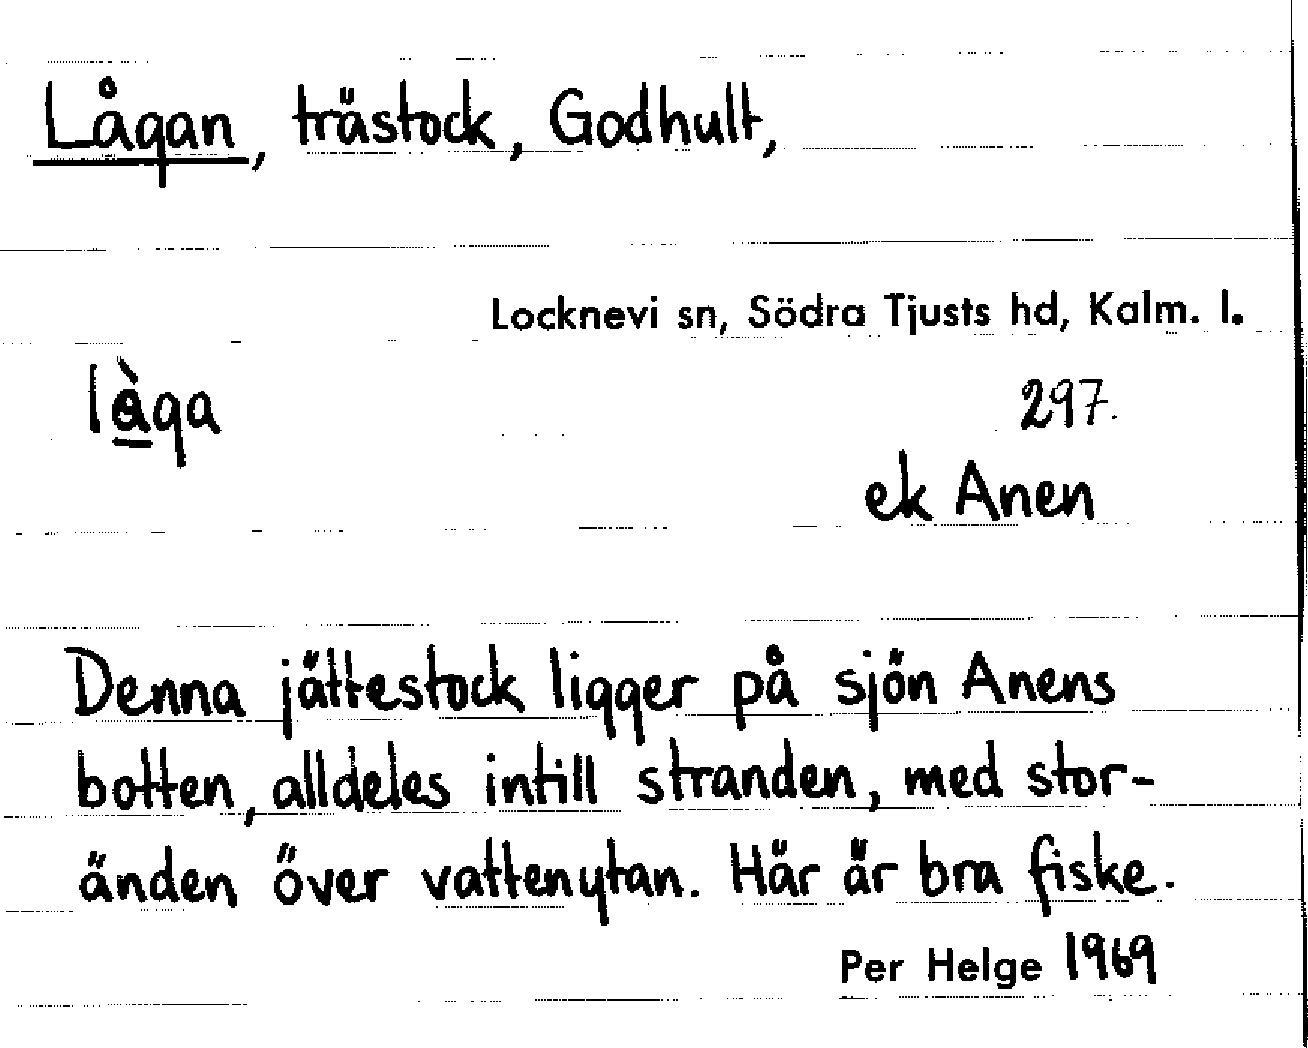 Lågan, trästock, Godhult,
Locknevi sn, Södra Tjusts hd, Kalm. l.
lå̀ga
297.
ek Anen
Denna jättestock ligger på sjön Anens
botten, alldeles intill stranden, med stor-
änden över vattenytan. Här är bra fiske.
Per Helge 1969